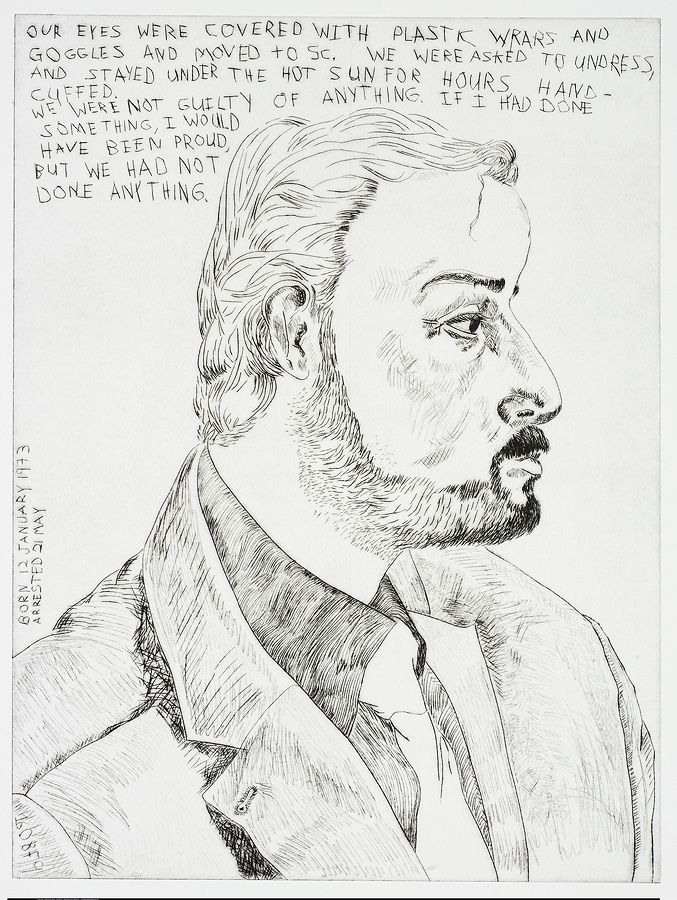 OUR EYES WERE COVERED WITH PLASTIC WRAPS AND
GOGGLES AND MOVED TO SC. WE WERE ASKED TO UNDRESS,
AND STAYED UNDER THE HOT SUN FOR HOURS, HAND-
CUFFED.
WE WERE NOT GUILTY OF ANYTHING. IF I HAD DONE
SOMETHING, I WOULD
HAVE BEEN PROUD,
BUT WE HAD NOT
DONE ANYTHING.
BORN 12 JANUARY 1973
ARRESTED 21 MAY